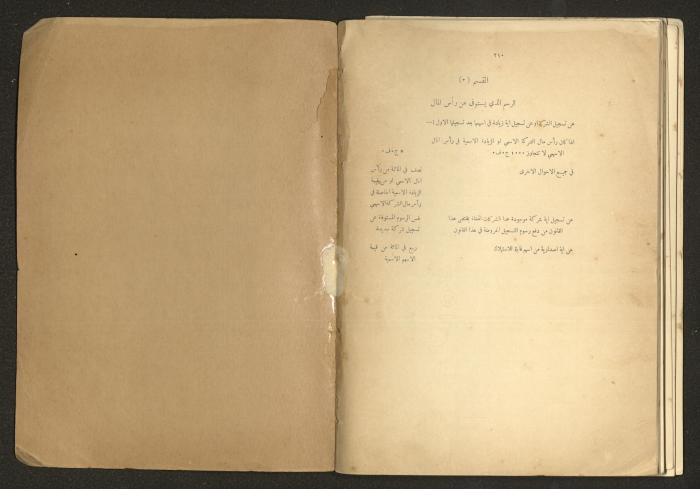 ٢١٠
القسم (٢)
الرسم الذي يستوفى عن رأس المال
عن تسجيل الشركة او عن تسجيل اية زيادة في اسهمها بعد تسجيلها الاول :—
اذا كان رأس مال الشركة الاسمي او الزيادة الاسمية في رأس المال
الاسمي لا تتجاوز ١٠٠٠ ج٠ف٠
٥ ج٠ف٠
في جميع الاحوال الاخرى
نصف في المائة من رأس
المال الاسمي او من قيمة
الزيادة الاسمية الحاصلة في
رأس مال الشركة الاسمي
عن تسجيل اية شركة موجودة عدا الشركات المعفاة بمقتضى هذا
القانون من دفع رسوم التسجيل المفروضة في هذا القانون
نفس الرسوم المستوفاة عن
تسجيل شركة جديدة
على اية اصدارية من اسهم قابلة للاستهلاك
ربع في المائة من قيمة
الاسهم الاسمية